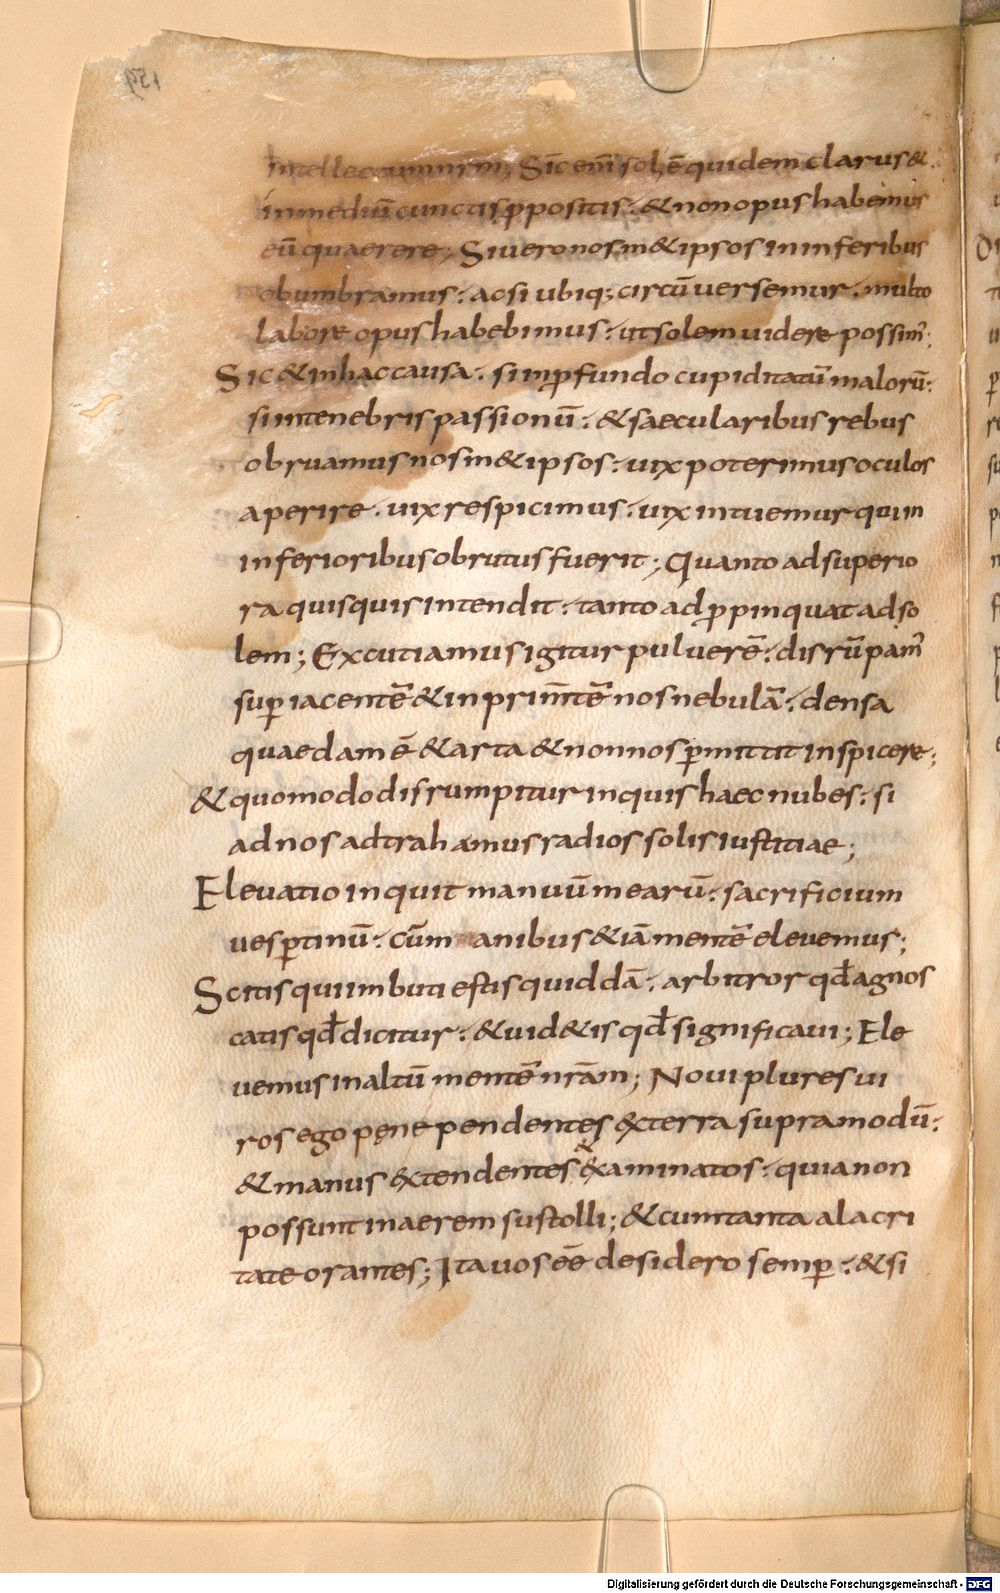 intellectum nrm; Sic eni sol ē quidem clarus &
in mediū cunctis ꝓpositis · & non opus habemus
eū quaerere; Si uero nosm&ipsos in inferibus
obumbramus · ac si ubiq; circū uersemur · multo
labore opus habebimus · ut solem uidere possim̄;
Sic & in hac causa · si in ꝓfundo cupiditatū malorū ·
si in tenebris passionū · & saecularibus rebus
obruamus nosm&ipsos · uix poterimus oculos
aperire · uix respicimus · uix intuemur qui in
inferioribus obrutus fuerit; Quanto ad superio
ra quisquis intendit · tanto adꝓpinquat ad so
lem; Excutiamus igitur puluerē · disrūpam̄
suꝑiacentē & inprim̄tē nos nebulā · densa
quaedam ē & arta & non nos ꝑmittit inspicere;
& quomodo disrumpitur inquis haec nubes · si
ad nos adtrahamus radios solis iustitiae;
Eleuatio inquit manuū mearū · sacrificium
uesꝑtinū · cūm anibus & iā mentē eleuemus;
Scitis qui imbuti estis quiddā · arbitror qđ agnos
catis qđ dicitur · & uid&is qđ significaui; Ele
uemus in altū mentē nrām; Noui plures ui
ros ego pene pendentes &terra supra modū ·
& manus &tendentes & &aminatos · quia non
possunt in aerem sustolli; & cum tanta alacri
tate orantes; Ita uos eē desidero semꝑ · & si
159
Digitalisierung gefördert durch die Deutsche Forschungsgemeinschaft - DFG